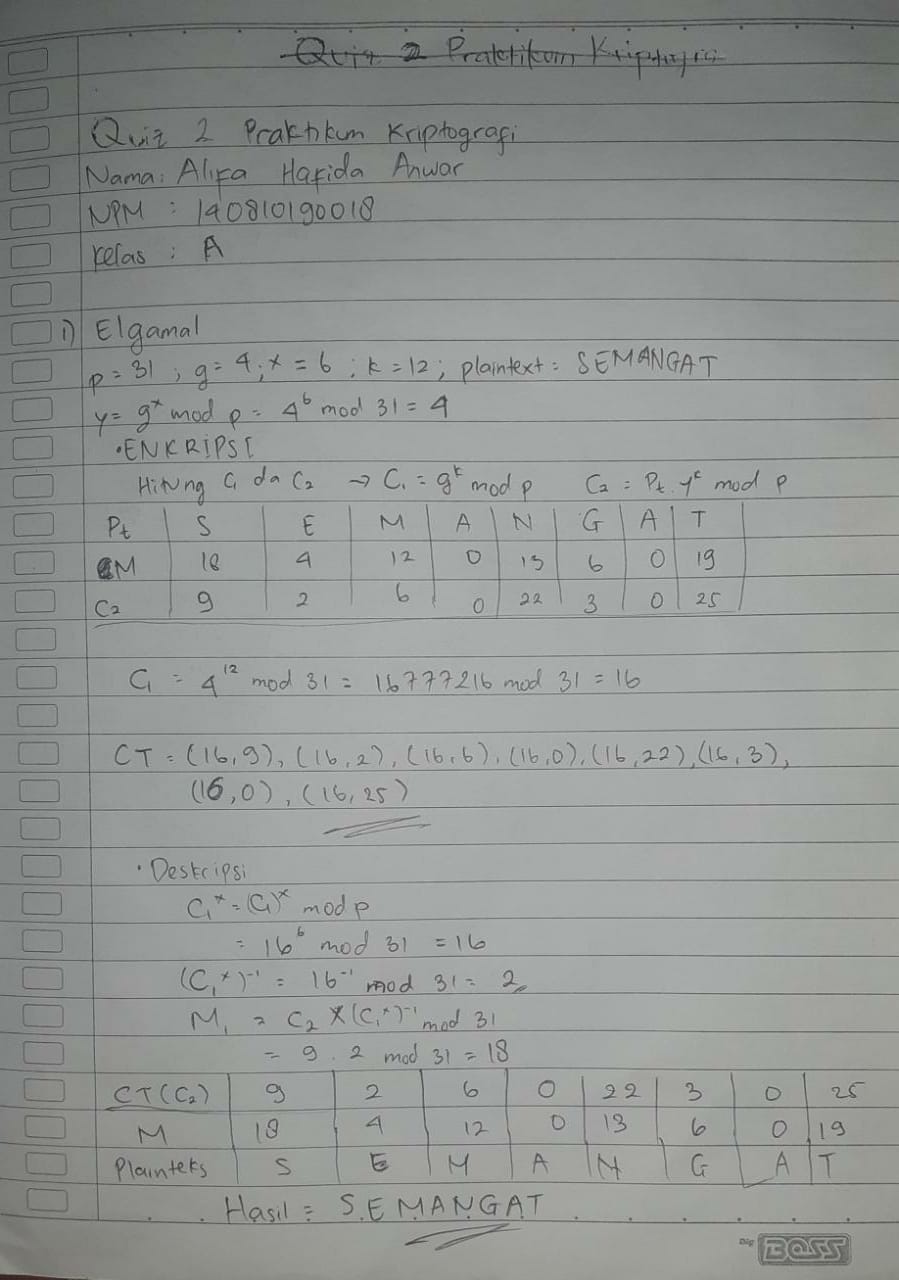 Quiz 2 Praktikum Kriptogra
Quiz 2 Praktikum Kriptografi
Nama: Alifa Hafida Anwar
NPM : 140810190018
Kelas : A
1) Elgamal
p = 31 ; g = 4 ; x = 6 ; k = 12 ; plaintext : SEMANGAT
y = g^x mod p = 4^6 mod 31 = 4
• ENKRIPSI
Hitung C₁ da C₂ → C₁ = g^k mod p C₂ = Pt . y^k mod p
Pt | S | E | M | A | N | G | A | T
M | 18 | 4 | 12 | 0 | 13 | 6 | 0 | 19
C₂ | 9 | 2 | 6 | 0 | 22 | 3 | 0 | 25
C₁ = 4^12 mod 31 = 16777216 mod 31 = 16
CT = (16,9), (16,2), (16,6), (16,0), (16,22), (16,3),
(16,0), (16,25)
• Deskripsi
C₁^x = (C₁)^x mod p
= 16^6 mod 31 = 16
(C₁^x)^-1 = 16^-1 mod 31 = 2
M₁ = C₂ × (C₁^x)^-1 mod 31
= 9 . 2 mod 31 = 18
CT(C₂) | 9 | 2 | 6 | 0 | 22 | 3 | 0 | 25
M | 18 | 4 | 12 | 0 | 13 | 6 | 0 | 19
Plainteks | S | E | M | A | N | G | A | T
Hasil = SEMANGAT
Big BOSS